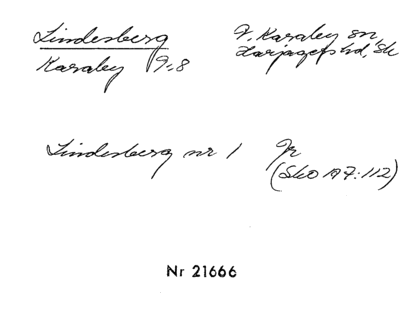 Lindesberg
Karaby 9:8
V. Karaby sn,
Harjagers hd, Sk
Lindesberg nr 1
Jr
(SkO A 7:112)
Nr 21666